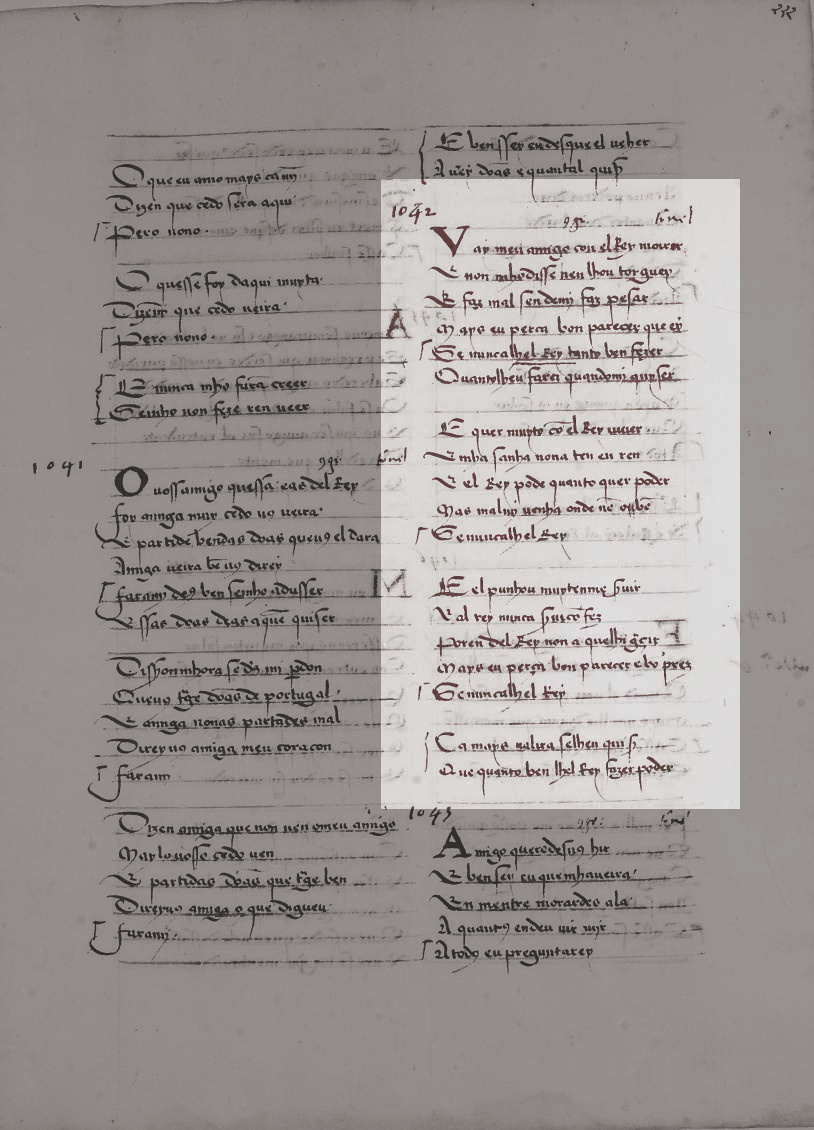 O que eu amo mays ca mī
Dizen que cedo sera aqui
Pero nono.
O quesse foy daqui muyta
Dizemī que cedo ueira.
Pero nono.
E nunca mho fura creer
Se mho non feze ren ueer
1041
O uossamigo quessa. eas del Rey
foy amiga muy cedo uꝯ ueira.
E partide bendas doas queuꝯ el dara
Amiga ueira bē uꝯ direy
faramy deꝯ ben semho adusser
E ssas doas doas a quē quiser
Dissyonmhora se ds mi pdon
Queuꝯ doas de portugal.
E amiga nonas partades mal
Direyuꝯ amiga meu coraçon
faramy
Dizen amiga que non uen omeu amigo
Mays lo uosse cedo uen
E partidas doas que ben
Direyuꝯ amiga o que digueu
faramy.
E ben sser endesque el ueher
A uēy doas e quantal quis
1042
Vay meu amigo con el Rey morar
E non mho disse nen lhou torguey
E faz mal sen demi faz pesar
Mays eu perca bon parecer que ey
Se nuncalhel Rey tanto ben fezer
Quantolheu farei quandomi quyser
E quer muyto cō el Rey uiuer
E mha sanha nona ten en ren
E el Rey pode quanto quer poder
Mas mal mj uenha onde nē ben
Se nuncalhel Rey
E el punhou muyten me suir
E al rey nunca suico fez
Poren del Rey non a quelhi gcir
Mays eu perça bon parecer e prez
Se nuncalhel Rey
Ca mays ualira se lhen quis
Que quanto ben lhel Rey fazer poder
1043
Amigo queredesuꝯ hir
E ben sey eu que mhaueira.
En mentre morardes ala
A quantꝯ en deu uir uijr
A todꝯ eu preguntarey